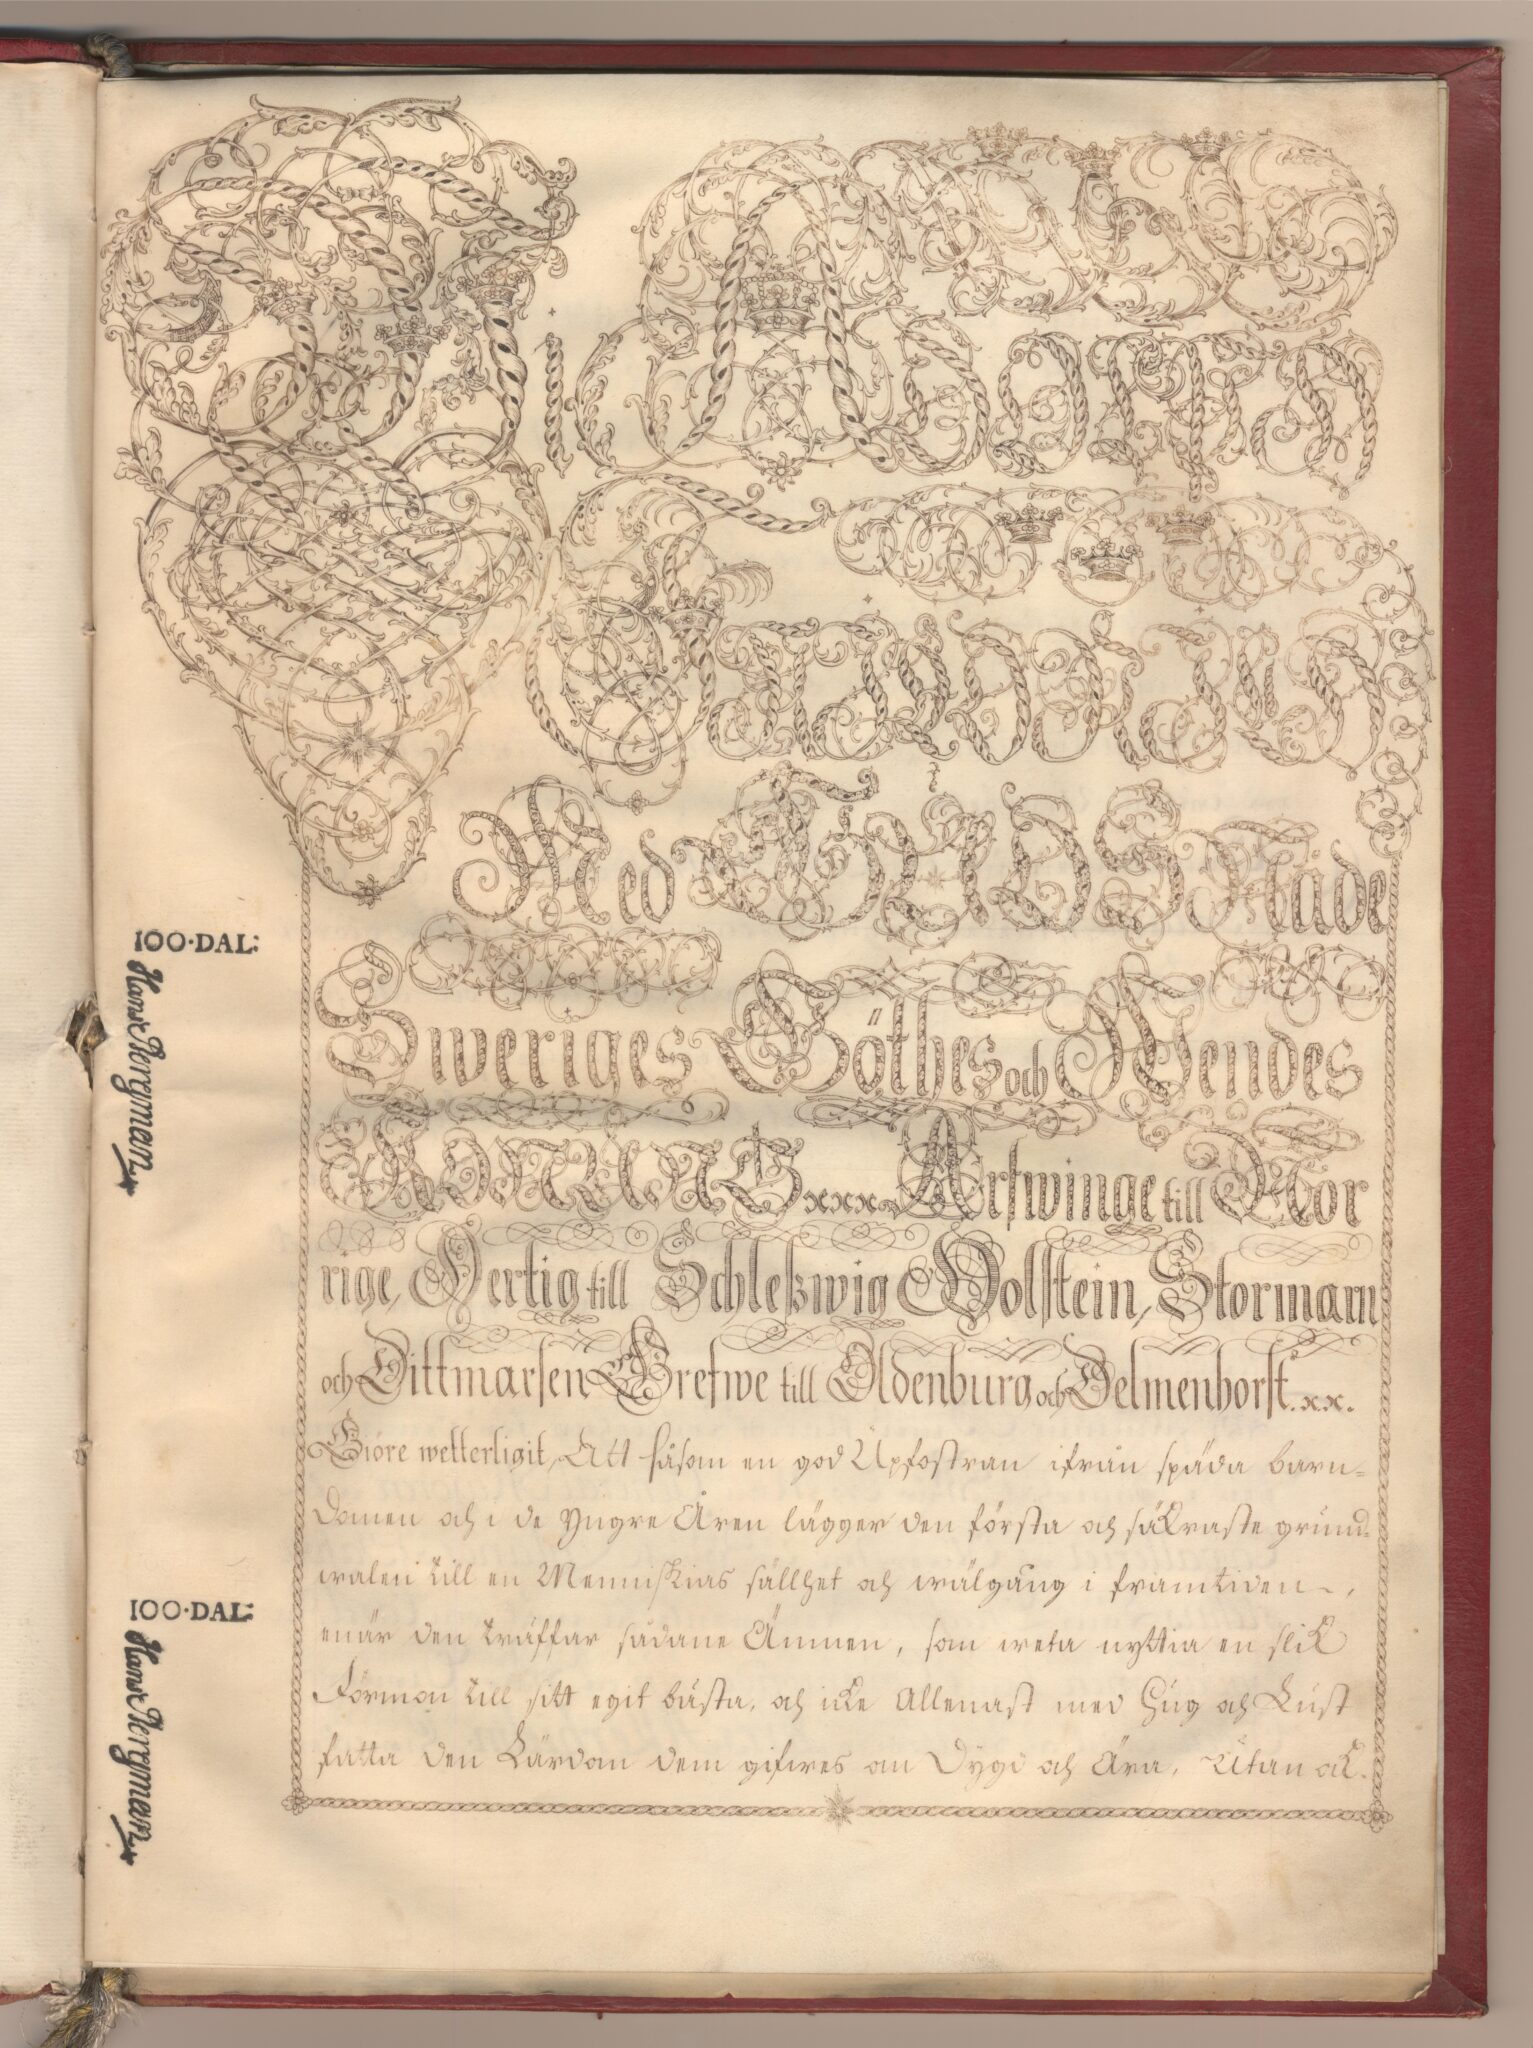 Wi ADOLPH
FRIEDRICH
Med GUDS Nåde
Sweriges Göthes och Wendes
KONUNG xxx. Arfwinge till Nor
rige, Hertig till Schleßwig Holstein, Stormarn
och Dittmarsen Grefwe till Oldenburg och Delmenhorst. xx.
Giöre wetterligit, Att såsom en god Upfostran ifrån späda barn=
domen och i de yngre Åren lägger den första och säkraste grund=
walen till en Menniskias sällhet och wälgång i framtiden,
enär den träffar sådane Ämnen, som weta nyttia en slik
Förmon till sitt egit bästa, och icke allenast med Hug och Lust
fatta den Lärdom dem gifwes om Dygd och Ära, Utan ock
100·DAL:
100·DAL: